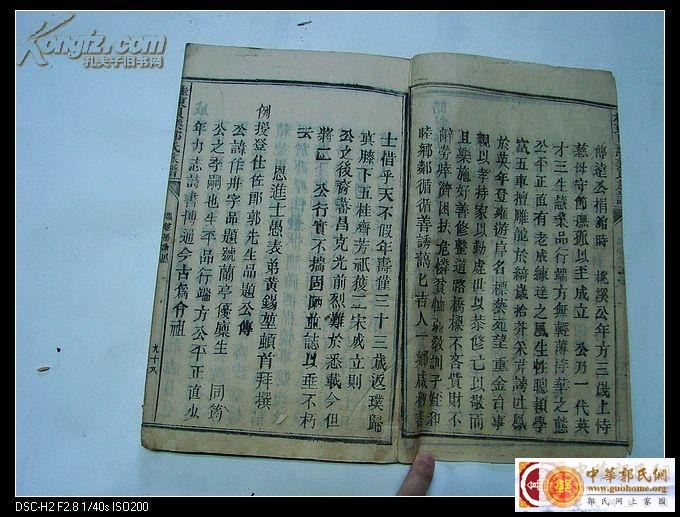 傳遂丞相館時 桃溪公年方三歲上恃
慈母守節撫孤以至成立 公乃一代英
才三生慧業品行端方無輕薄浮華之態
公平正直有老成練達之風生性聰穎學
富五車擅雕龍於綺歲拾芥采芹謗吐鳳
於英年登雍游庠名標藝苑望重金台事
親以孝持家以勤處世以恭修己以敬而
且樂施好善修整道路橋樑不吝貲財不
辭勞瘁濟困扶危矜貧恤寡教訓子姪和
睦鄉鄰循循善誘藹藹吉人一鄉咸稱善
士惜乎天不假年壽僅三十三歲返璞歸
真膝下五桂齊芳祇獲一宋成立則
公之後裔蕃昌克光前烈難於悉載今但
將 公行實不揣固陋並誌以垂不朽
云
恩進士愚表弟黃錫堃頓首拜撰
例授登仕佐郎郭先生品題公傳
公諱作舟字品題號蘭亭優廩生 同筠
公之季嗣也生平品行端方公平正直少
年有志詩書博通今古為合祖
九十八
Kongfz.com
孔夫子旧书网
中華郭氏網
www.guohome.org
郭氏网上家园
DSC-H2 F2.8 1/40s ISO200